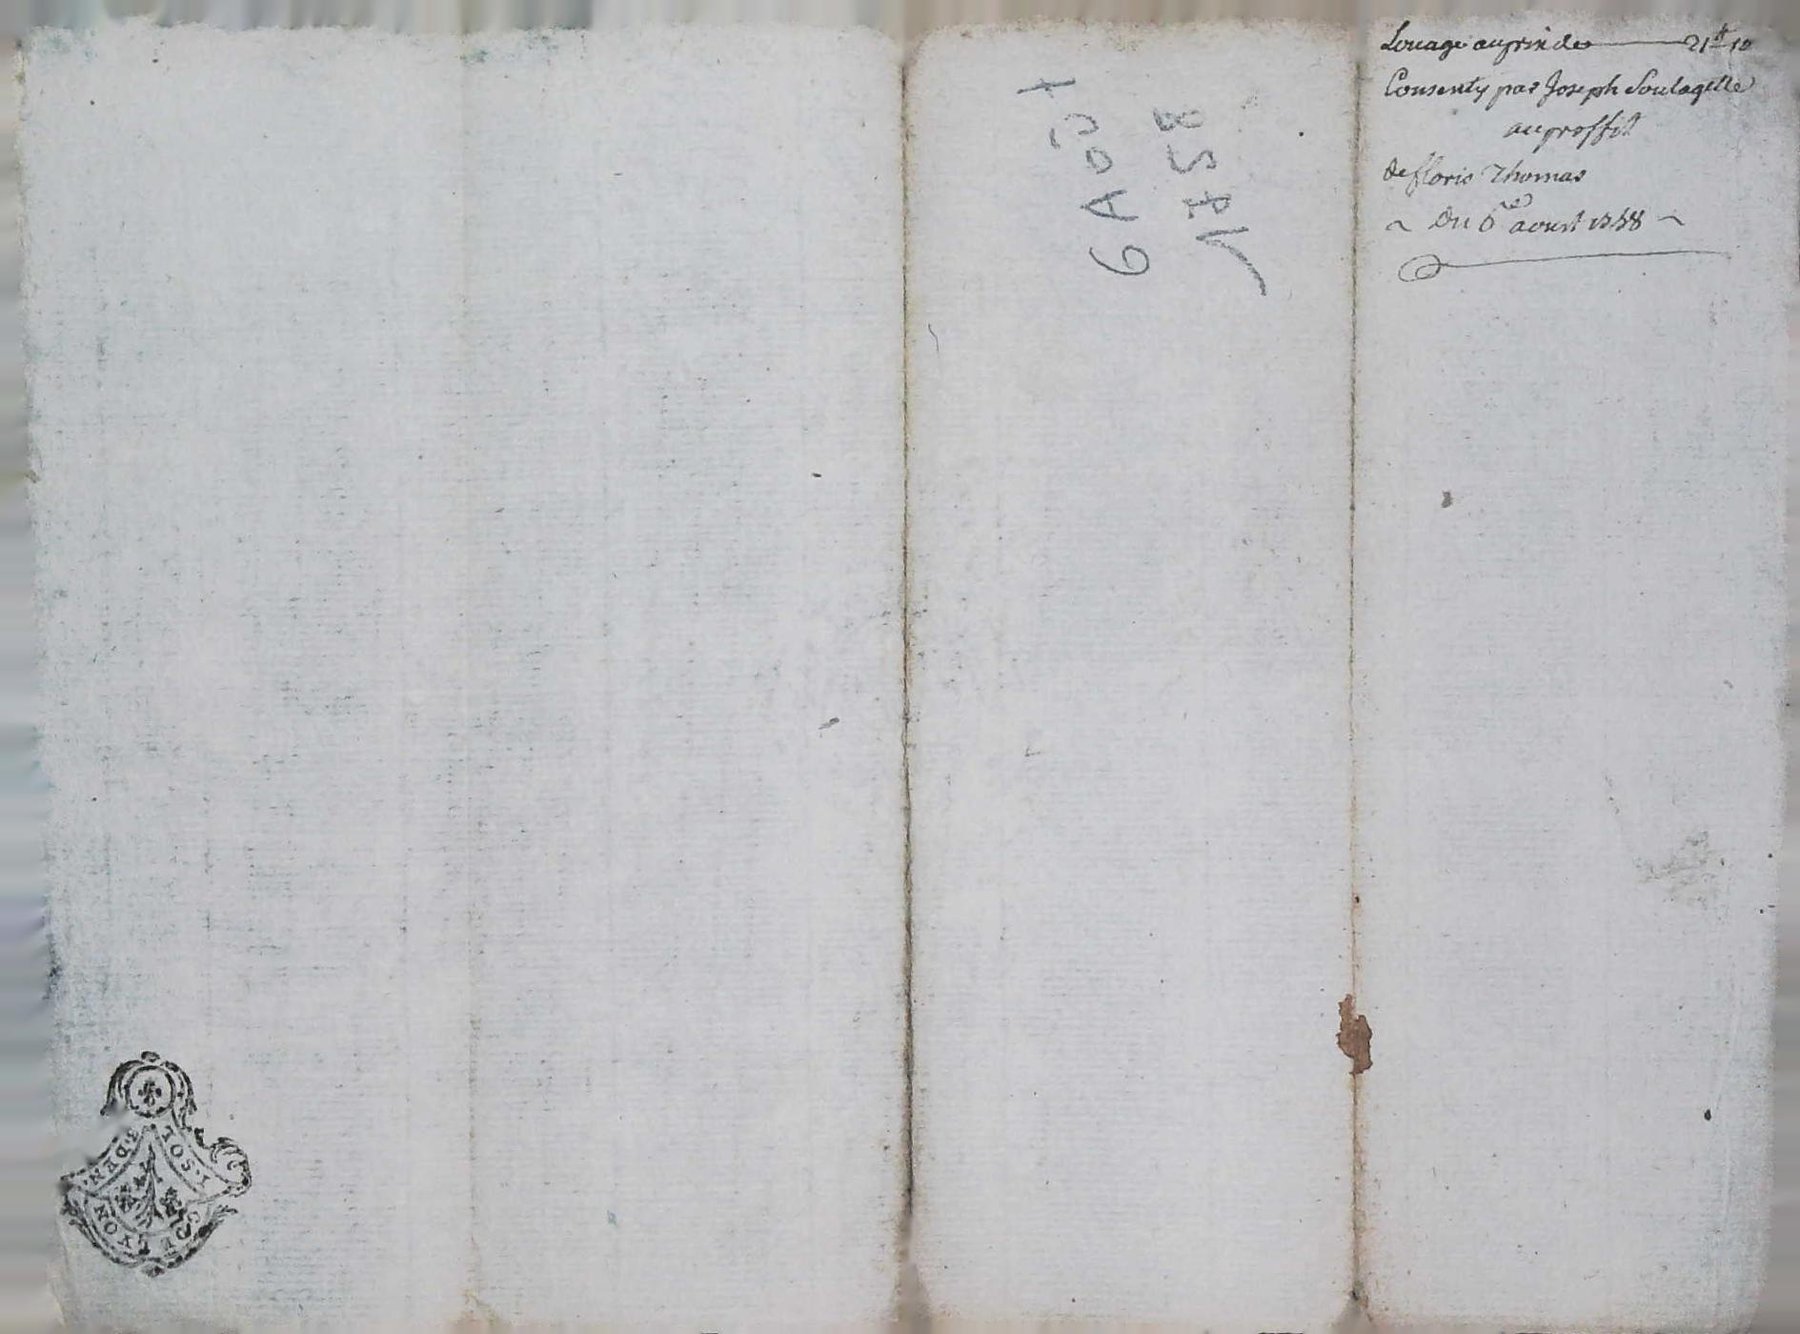 Louage au prix de 21tt 10
Consenty par Joseph Soulagette
au proffit
de floris Thomas
~ Du 6e aoust 1758 ~
6 AOÛT
1758
1. SOL. 3. DEN.
G. DE LYON